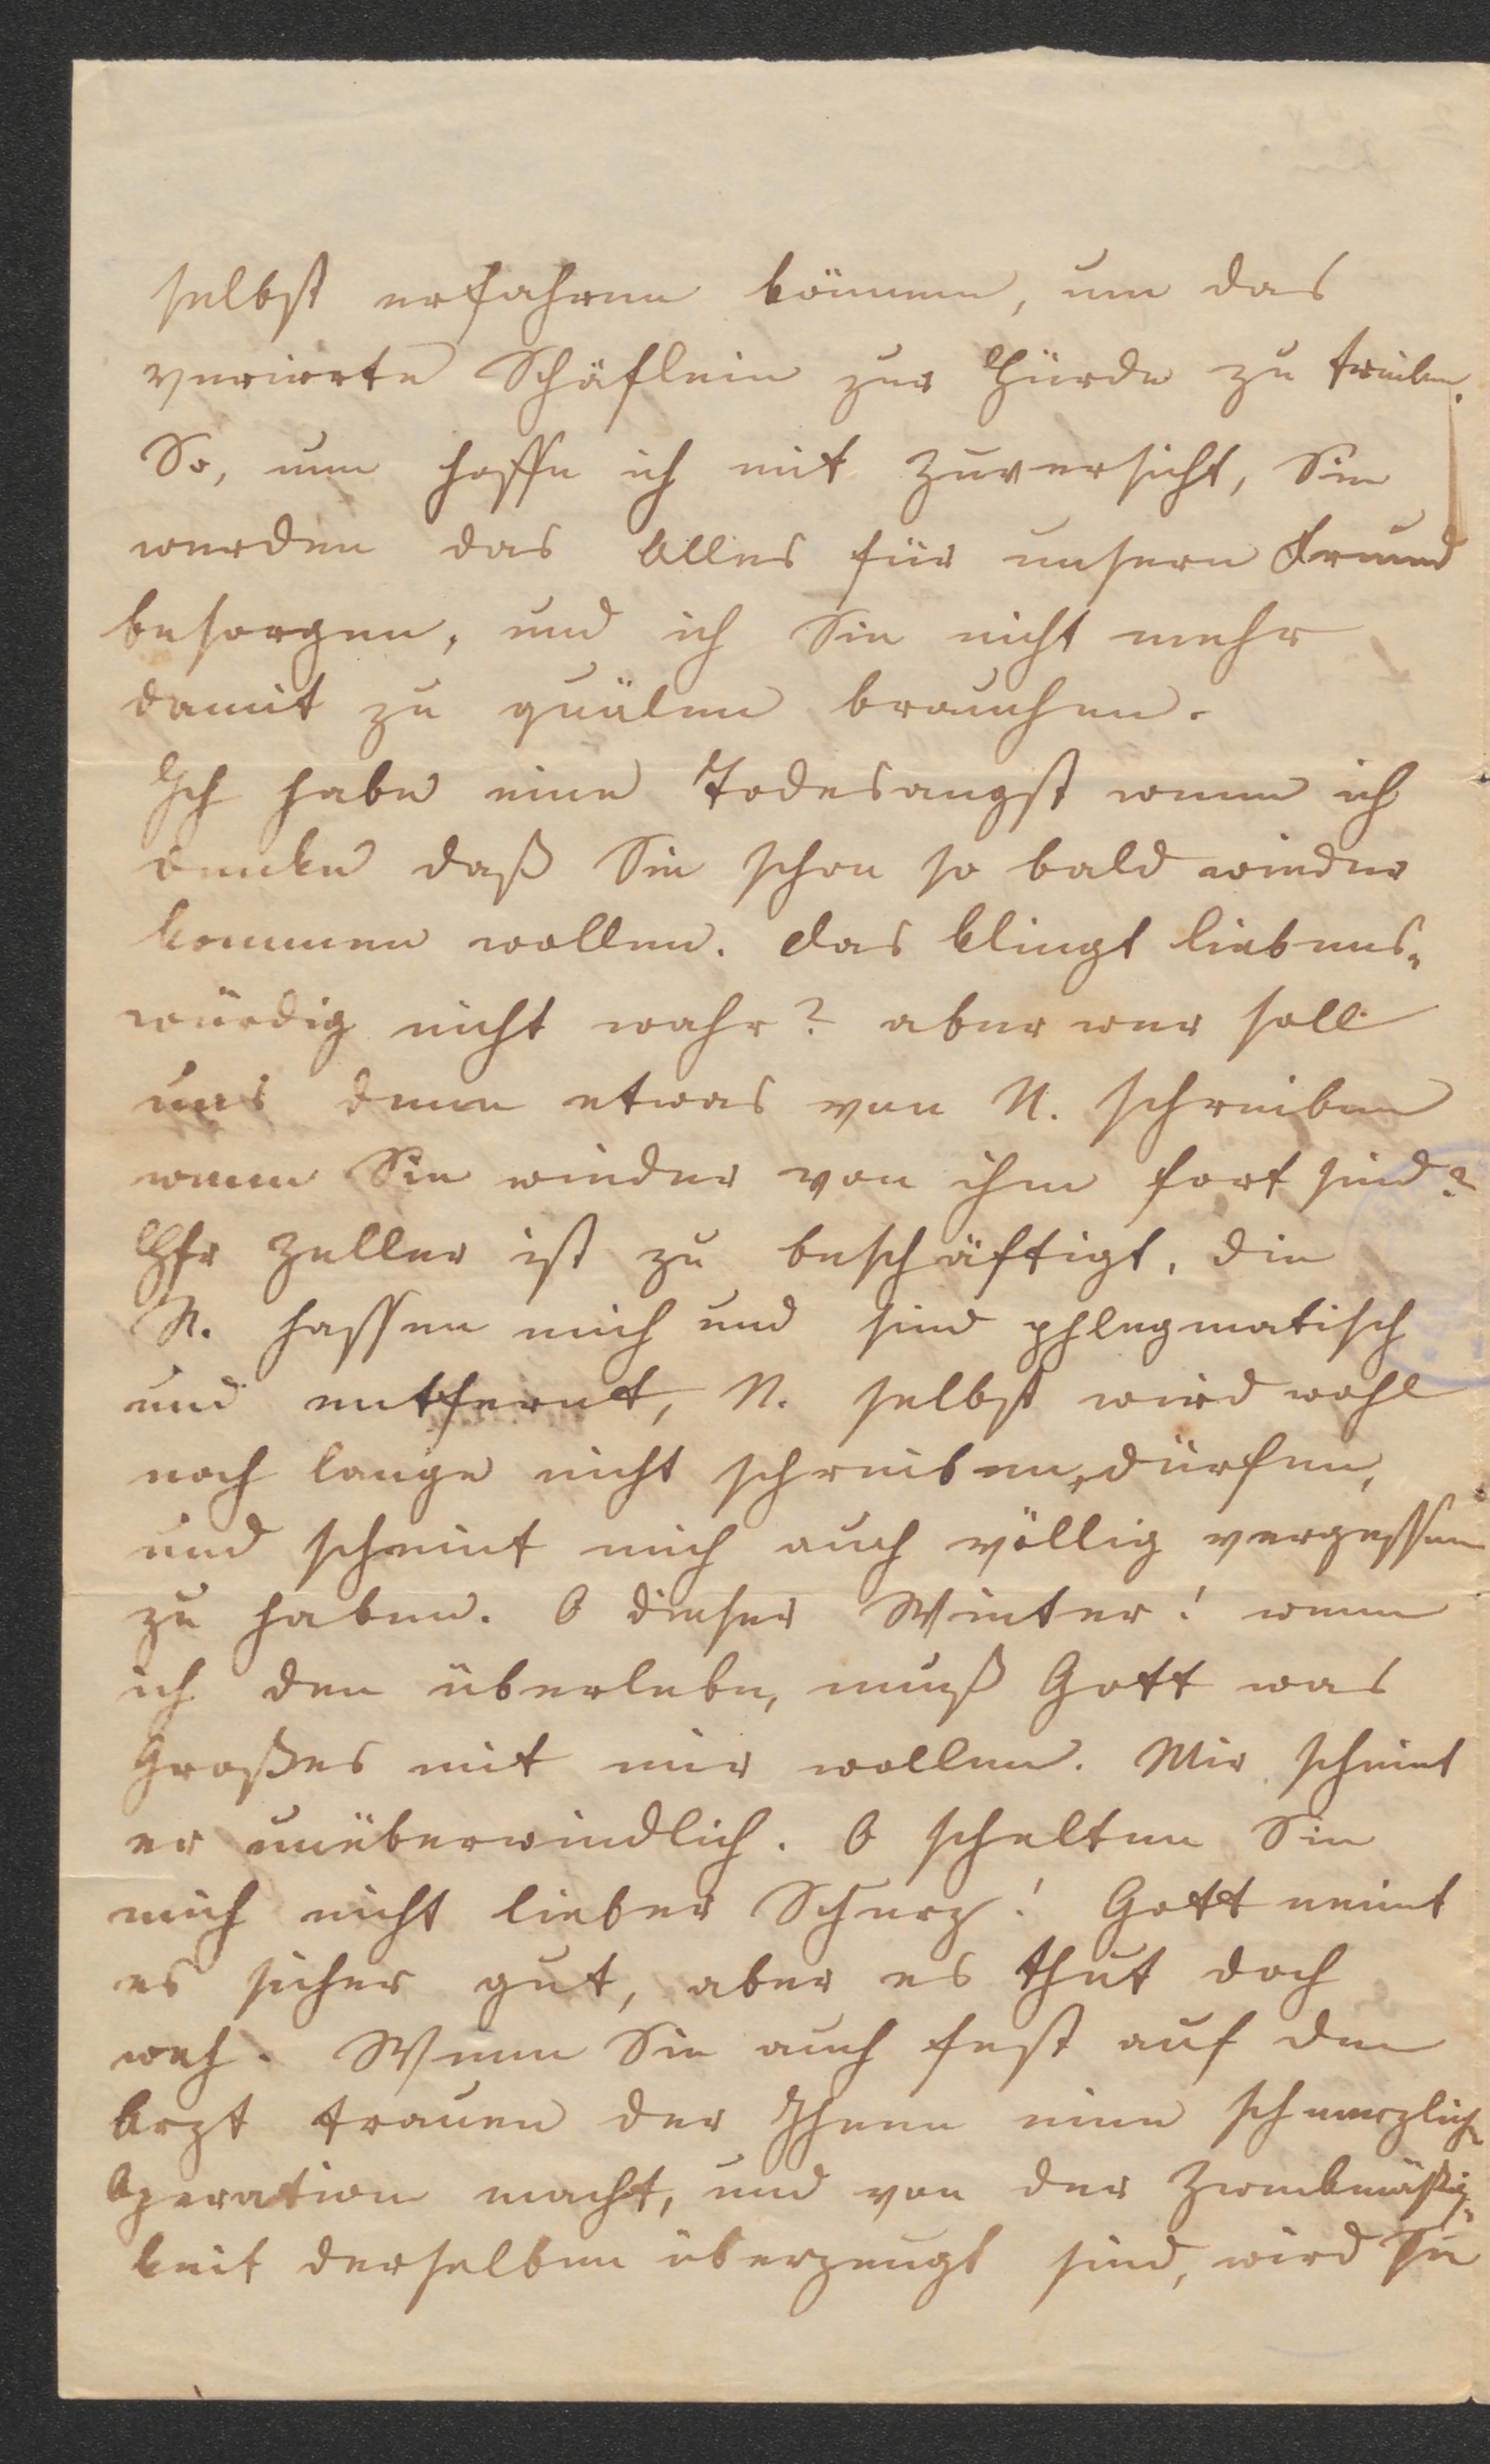 selbst erfahren können, um das
verirrte Schäflein zur Hürde zu treiben.
So, nun hoffe ich mit Zuversicht, Sie
werden das Alles für unsern Freund
besorgen, und ich Sie nicht mehr
damit zu quälen brauchen.
Ich habe eine Todesangst wenn ich
denke daß Sie schon so bald wieder
kommen wollen. Das klingt liebens-
würdig nicht wahr? aber wer soll
uns denn etwas von N. schreiben
wenn Sie wieder von ihm fort sind?
Hfr Zeller ist zu beschäftigt, die
N. hassen mich und sind phlegmatisch
und entfernt, N. selbst wird wohl
noch lange nicht schreiben dürfen,
und scheint mich auch völlig vergessen
zu haben. O dieser Winter! wenn
ich den überlebe, muß Gott was
Großes mit mir wollen. Mir scheint
er unüberwindlich. O schelten Sie
mich nicht lieber Schurz! Gott meint
es sicher gut, aber es thut doch
weh. Wenn Sie auch fest auf den
Arzt trauen der Ihnen eine schmerzliche
Operation macht, und von der Zweckmäßig-
keit derselben überzeugt sind, wird Sie